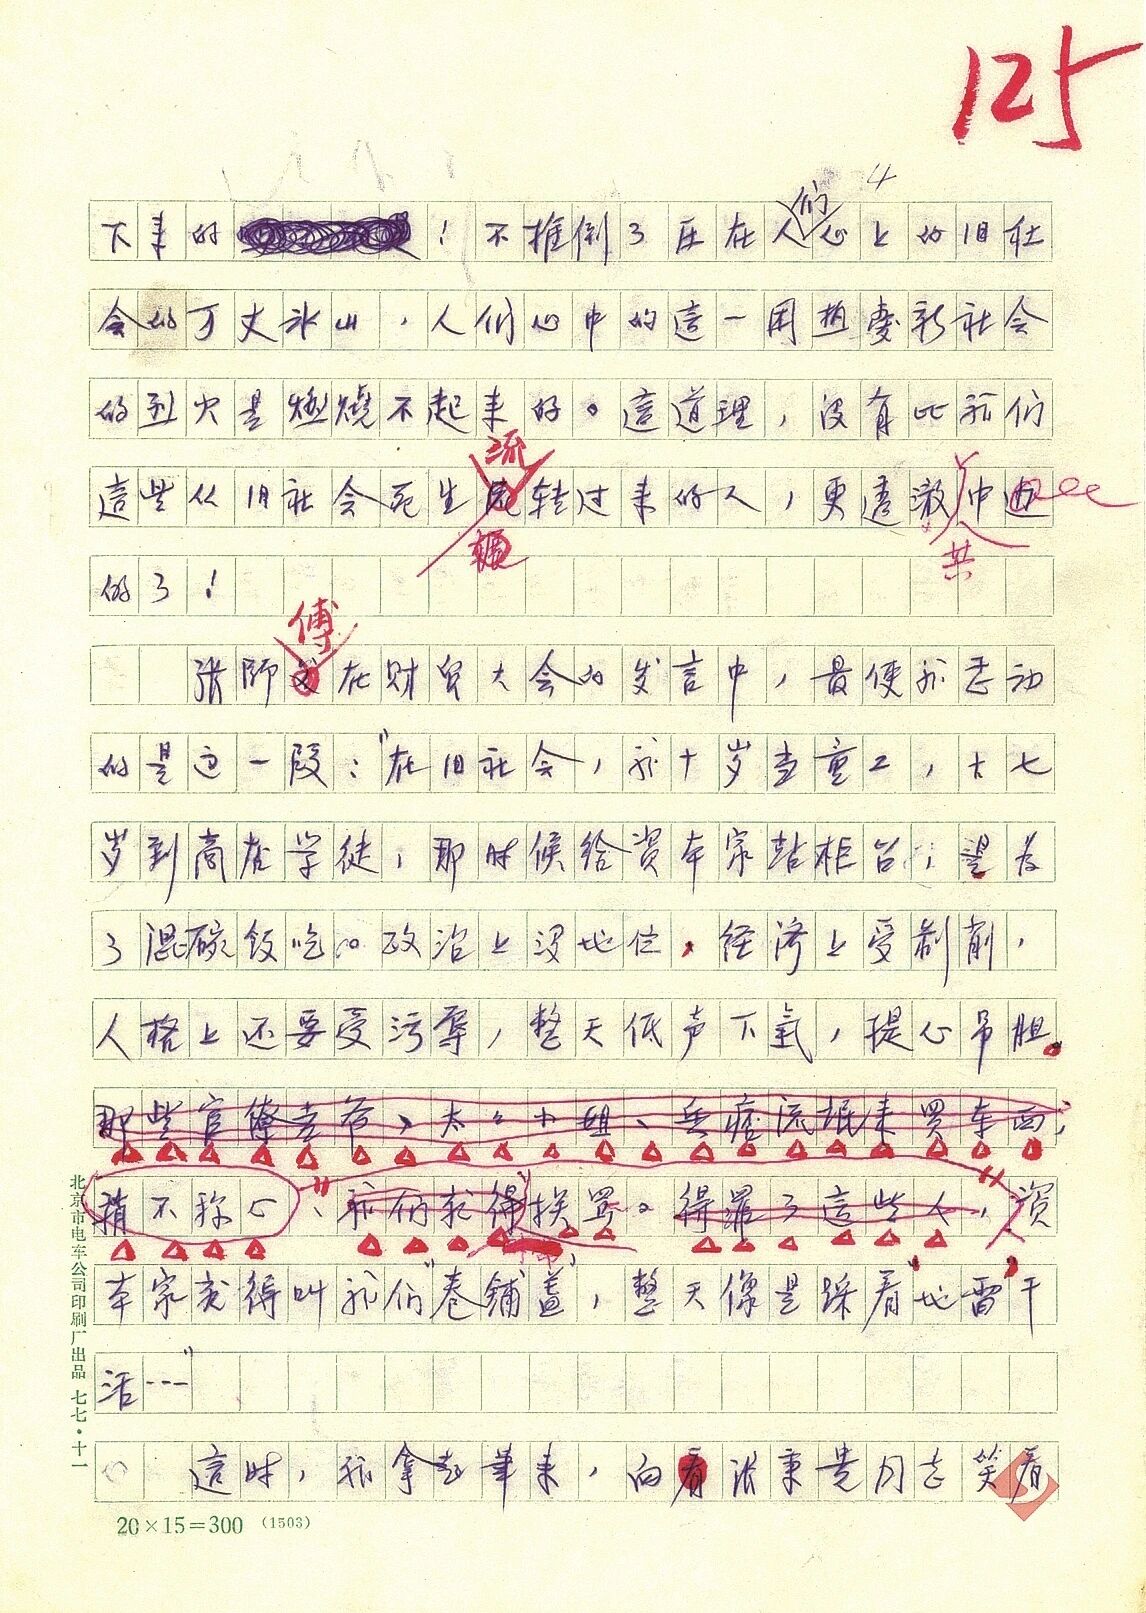 125
4
下来的！不推倒了压在人们心上的旧社
会的万丈冰山，人们心中的这一团热爱新社会
的烈火是燃烧不起来的。這道理，没有比我们
這些从旧社会死生流转过来的人，更透澈
共
的了！
张師傅在财贸大会的发言中，最使我感动
的是这一段：“在旧社会，我十岁当童工，十七
岁到商店学徒，那时候给資本家站柜台，是为
了混碗饭吃。政治上没地位，经济上受剥削，
人格上还要受污辱，整天低声下氣，提心吊胆。
那些官僚老爷、太太小姐、兵痞流氓来买东西，
稍不称心、我们就得挨骂。得罪了这些人，資
本家就得叫我们“卷铺盖”，整天像是踩着“地雷”干
活……”
這时，我拿起筆来，向着张秉贵同志笑着
20×15=300 (1503)
北京市电车公司印刷厂出品 七七·十一